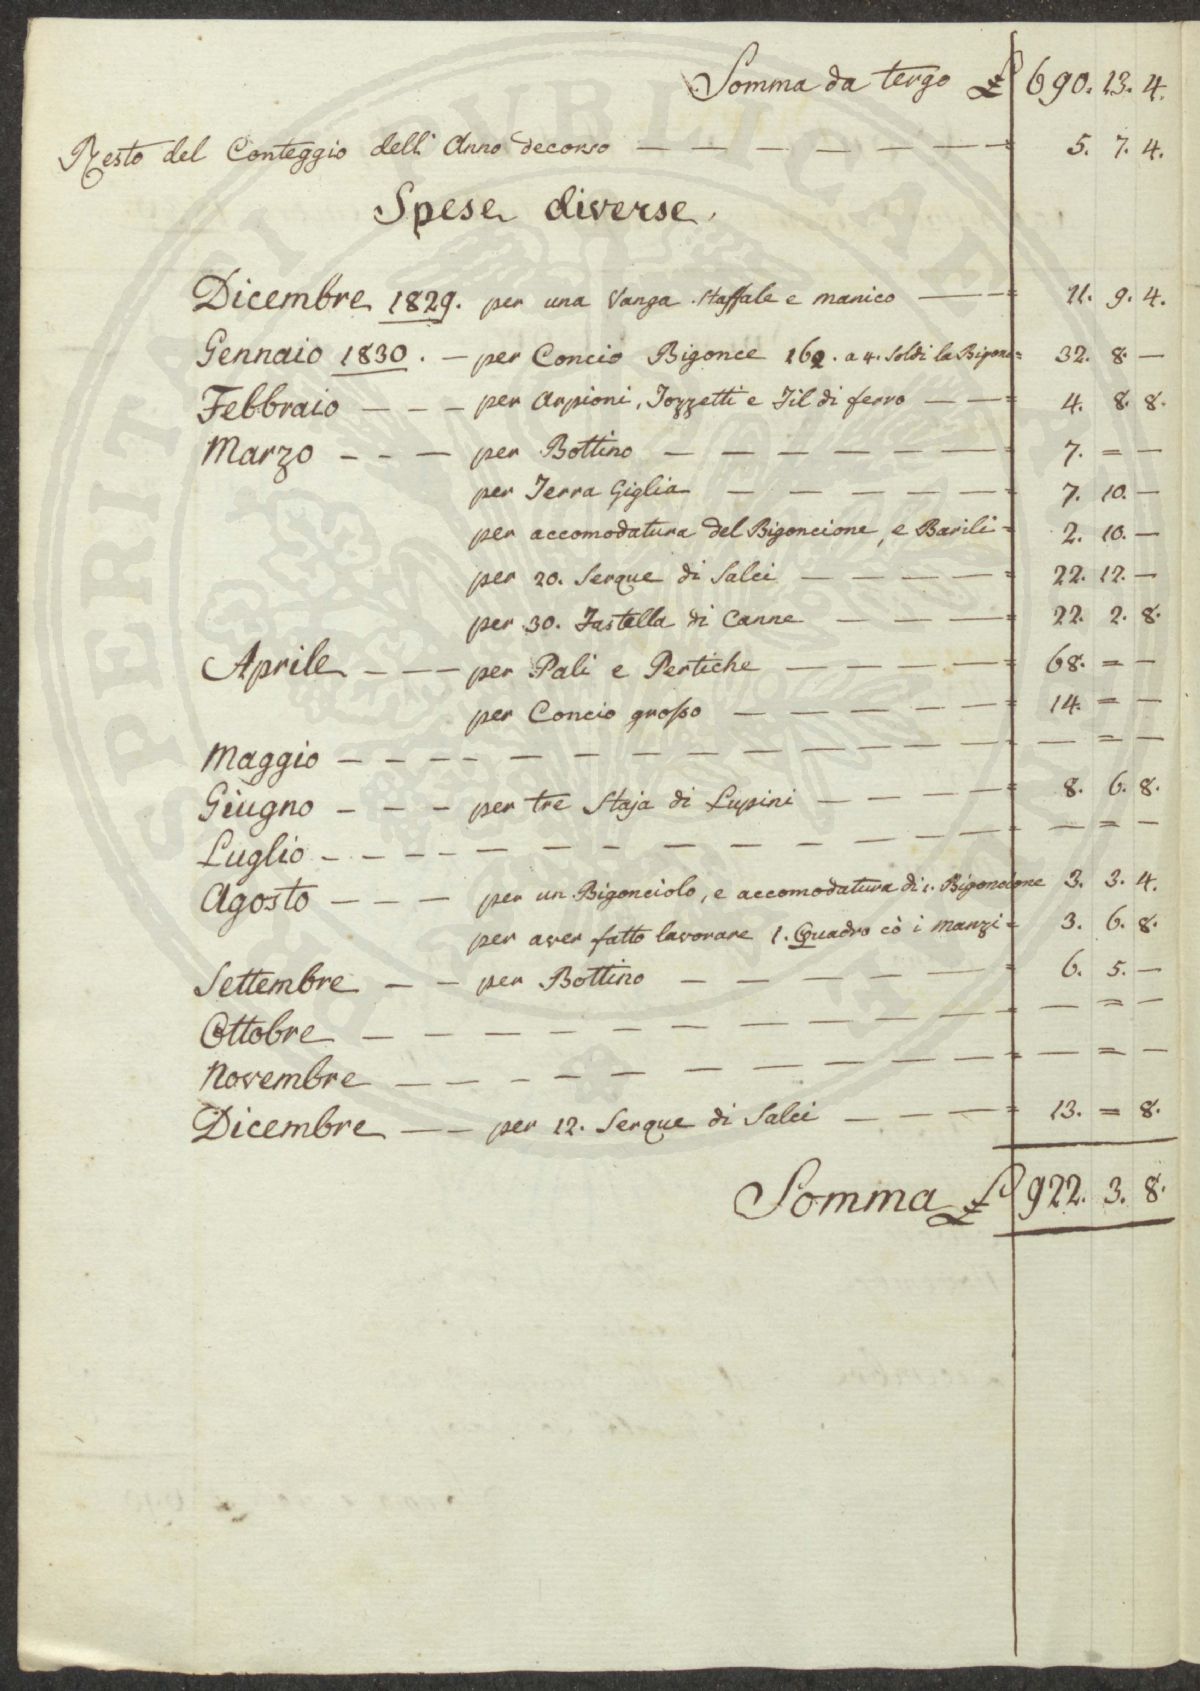 Somma da tergo £ 690. 13. 4.
Resto del Conteggio dell' Anno decorso — — — — — — — = 5. 7. 4.
Spese diverse.
Dicembre 1829. per una Vanga Staffale e manico — — = 11. 9. 4.
Gennaio 1830. — per Concio Bigonce 162. a 4. Soldi la Bigon= 32. 8. —
Febbraio — — — per Arpioni, Tozzetti e Fil di ferro — — = 4. 8. 8.
Marzo — — — per Bottino — — — — — — — = 7. = —
per Terra Giglia — — — — — = 7. 10. —
per accomodatura del Bigoncione, e Barili = 2. 10. —
per 20. Serque di Salci — — — — = 22. 12. —
per 30. Fastella di Canne — — — = 22. 2. 8.
Aprile — — — per Pali e Pertiche — — — — = 68. = —
per Concio grosso — — — — — = 14. = —
Maggio — — — — — — — — — — — — — = —
Giugno — — — per tre Staja di Lupini — — — — = 8. 6. 8.
Luglio — — — — — — — — — — — — — = —
Agosto — — — per un Bigonciolo, e accomodatura di 1. Bigoncione 3. 3. 4.
per aver fatto lavorare 1. Quadro cò i Manzi = 3. 6. 8.
Settembre — — per Bottino — — — — — = 6. 5. —
Ottobre — — — — — — — — — — — — = —
Novembre — — — — — — — — — — = — = —
Dicembre — — per 12. Serque di Salci — — — = 13. = 8.
Somma £ 922. 3. 8.